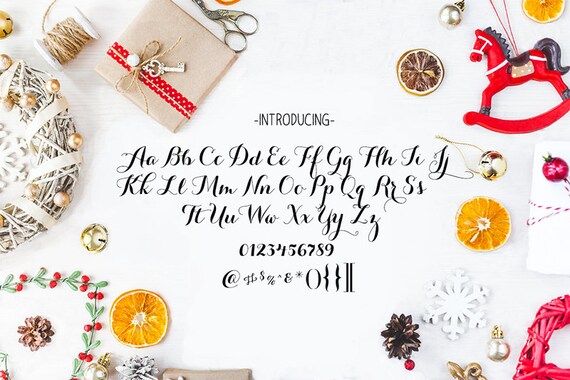 -INTRODUCING-
Aa Bb Cc Dd Ee Ff Gg Hh Ii Jj
Kk Ll Mm Nn Oo Pp Qq Rr Ss
Tt Uu Ww Xx Yy Zz
0123456789
@#$%^&*(){}[]